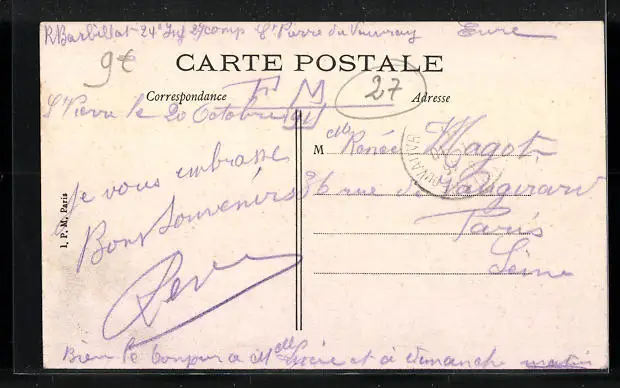 R Barbillat 24e Inf 27 comp St Pierre du Vauvray Eure
9€
CARTE POSTALE
F M
27
Correspondance
Adresse
St Pierre le 20 Octobre 1914
Je vous embrasse
Bons Souvenirs
René
M lle Renée Magot
36 rue de Vaugirard
Paris
Seine
Bien le bonjour a Mlle et à dimanche matin
I. P. M. Paris